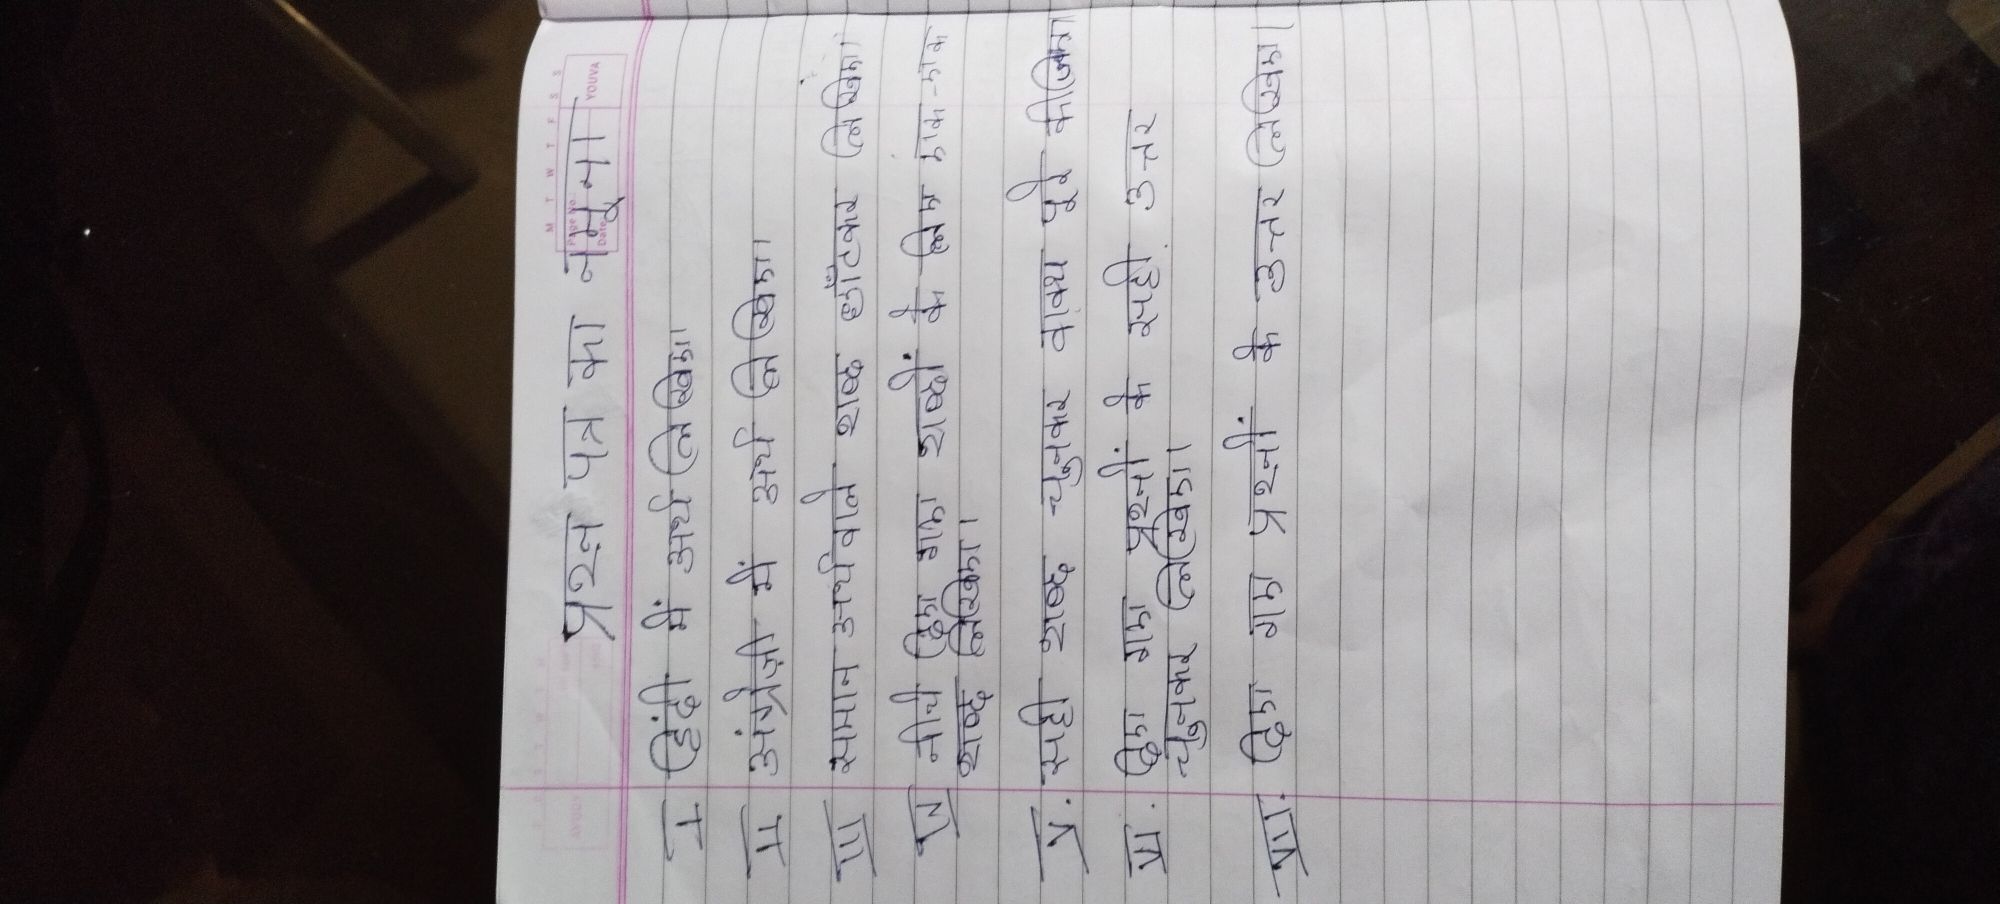 M T W T F S S
Page No.:
Date:
YOUVA
प्रश्न पत्र का नमूना
I हिंदी में अर्थ लिखिए।
II अंग्रेज़ी में अर्थ लिखिए।
III समान अर्थवाले शब्द छाँटकर लिखिए।
IV नीचे दिए गए शब्दों के लिए एक-एक
शब्द लिखिए।
V. सही शब्द चुनकर वाक्य पूरे कीजिए।
VI. दिए गए प्रश्नों के सही उत्तर
चुनकर लिखिए।
VII. दिए गए प्रश्नों के उत्तर लिखिए।